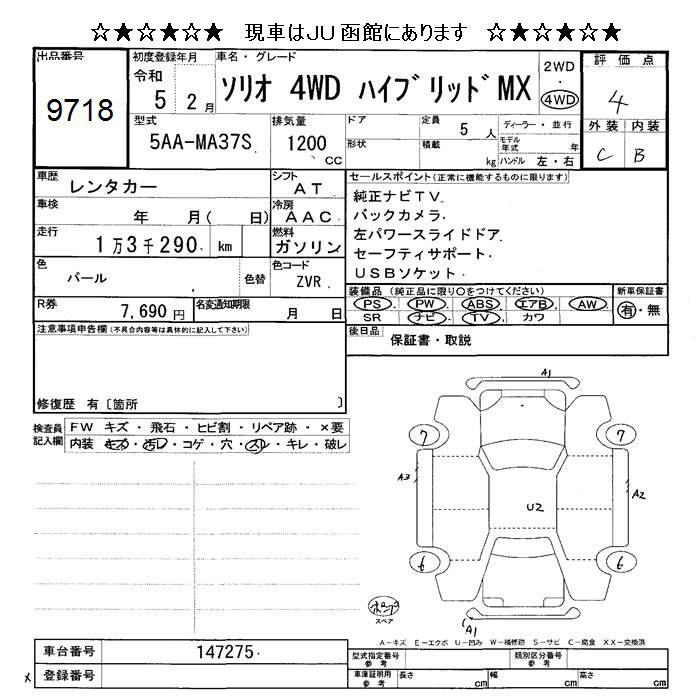 ☆★☆★☆★ 現車はJU函館にあります ☆★☆★☆★
出品番号
9718
初度登録年月
令和
5 2月
車名・グレード
ソリオ 4WD ハイブリッドMX
2WD
・
4WD
評価点
4
外装 内装
C B
型式
5AA-MA37S
排気量
1200
CC
ドア
形状
定員
5人
積載
kg
ディーラー・並行
モデル年式 年
ハンドル 左・右
車歴
レンタカー
シフト
AT
車検
年 月( 日)
冷房
AAC
走行
1万3千290 km
燃料
ガソリン
色
パール
色替
色コード
ZVR
R券
7,690円
名変通知期限
月 日
セールスポイント(正常に機能するものに限ります)
純正ナビTV
バックカメラ
左パワースライドドア
セーフティサポート
USBソケット
装備品 (純正品に限り○をつけてください)
PS・PW・ABS・エアB・AW
SR ナビ・TV・カワ
新車保証書
有・無
後日品
保証書・取説
注意事項申告欄(不具合内容等は具体的に記入して下さい)
修復歴 有〔箇所 〕
検査員
記入欄
FW キズ・飛石・ヒビ割・リペア跡・×要
内装 キズ・汚レ・コゲ・穴・スレ・キレ・破レ
A1
7 7
A3 A2
U2
6 6
ポンプ
スペア
A1
A-キズ E-エクボ U-凹み W-補修跡 S-サビ C-腐食 XX-交換済
車台番号
147275
登録番号
型式指定番号
参考
類別区分番号
参考
車庫証明用
参考
長さ cm
幅 cm
高さ cm